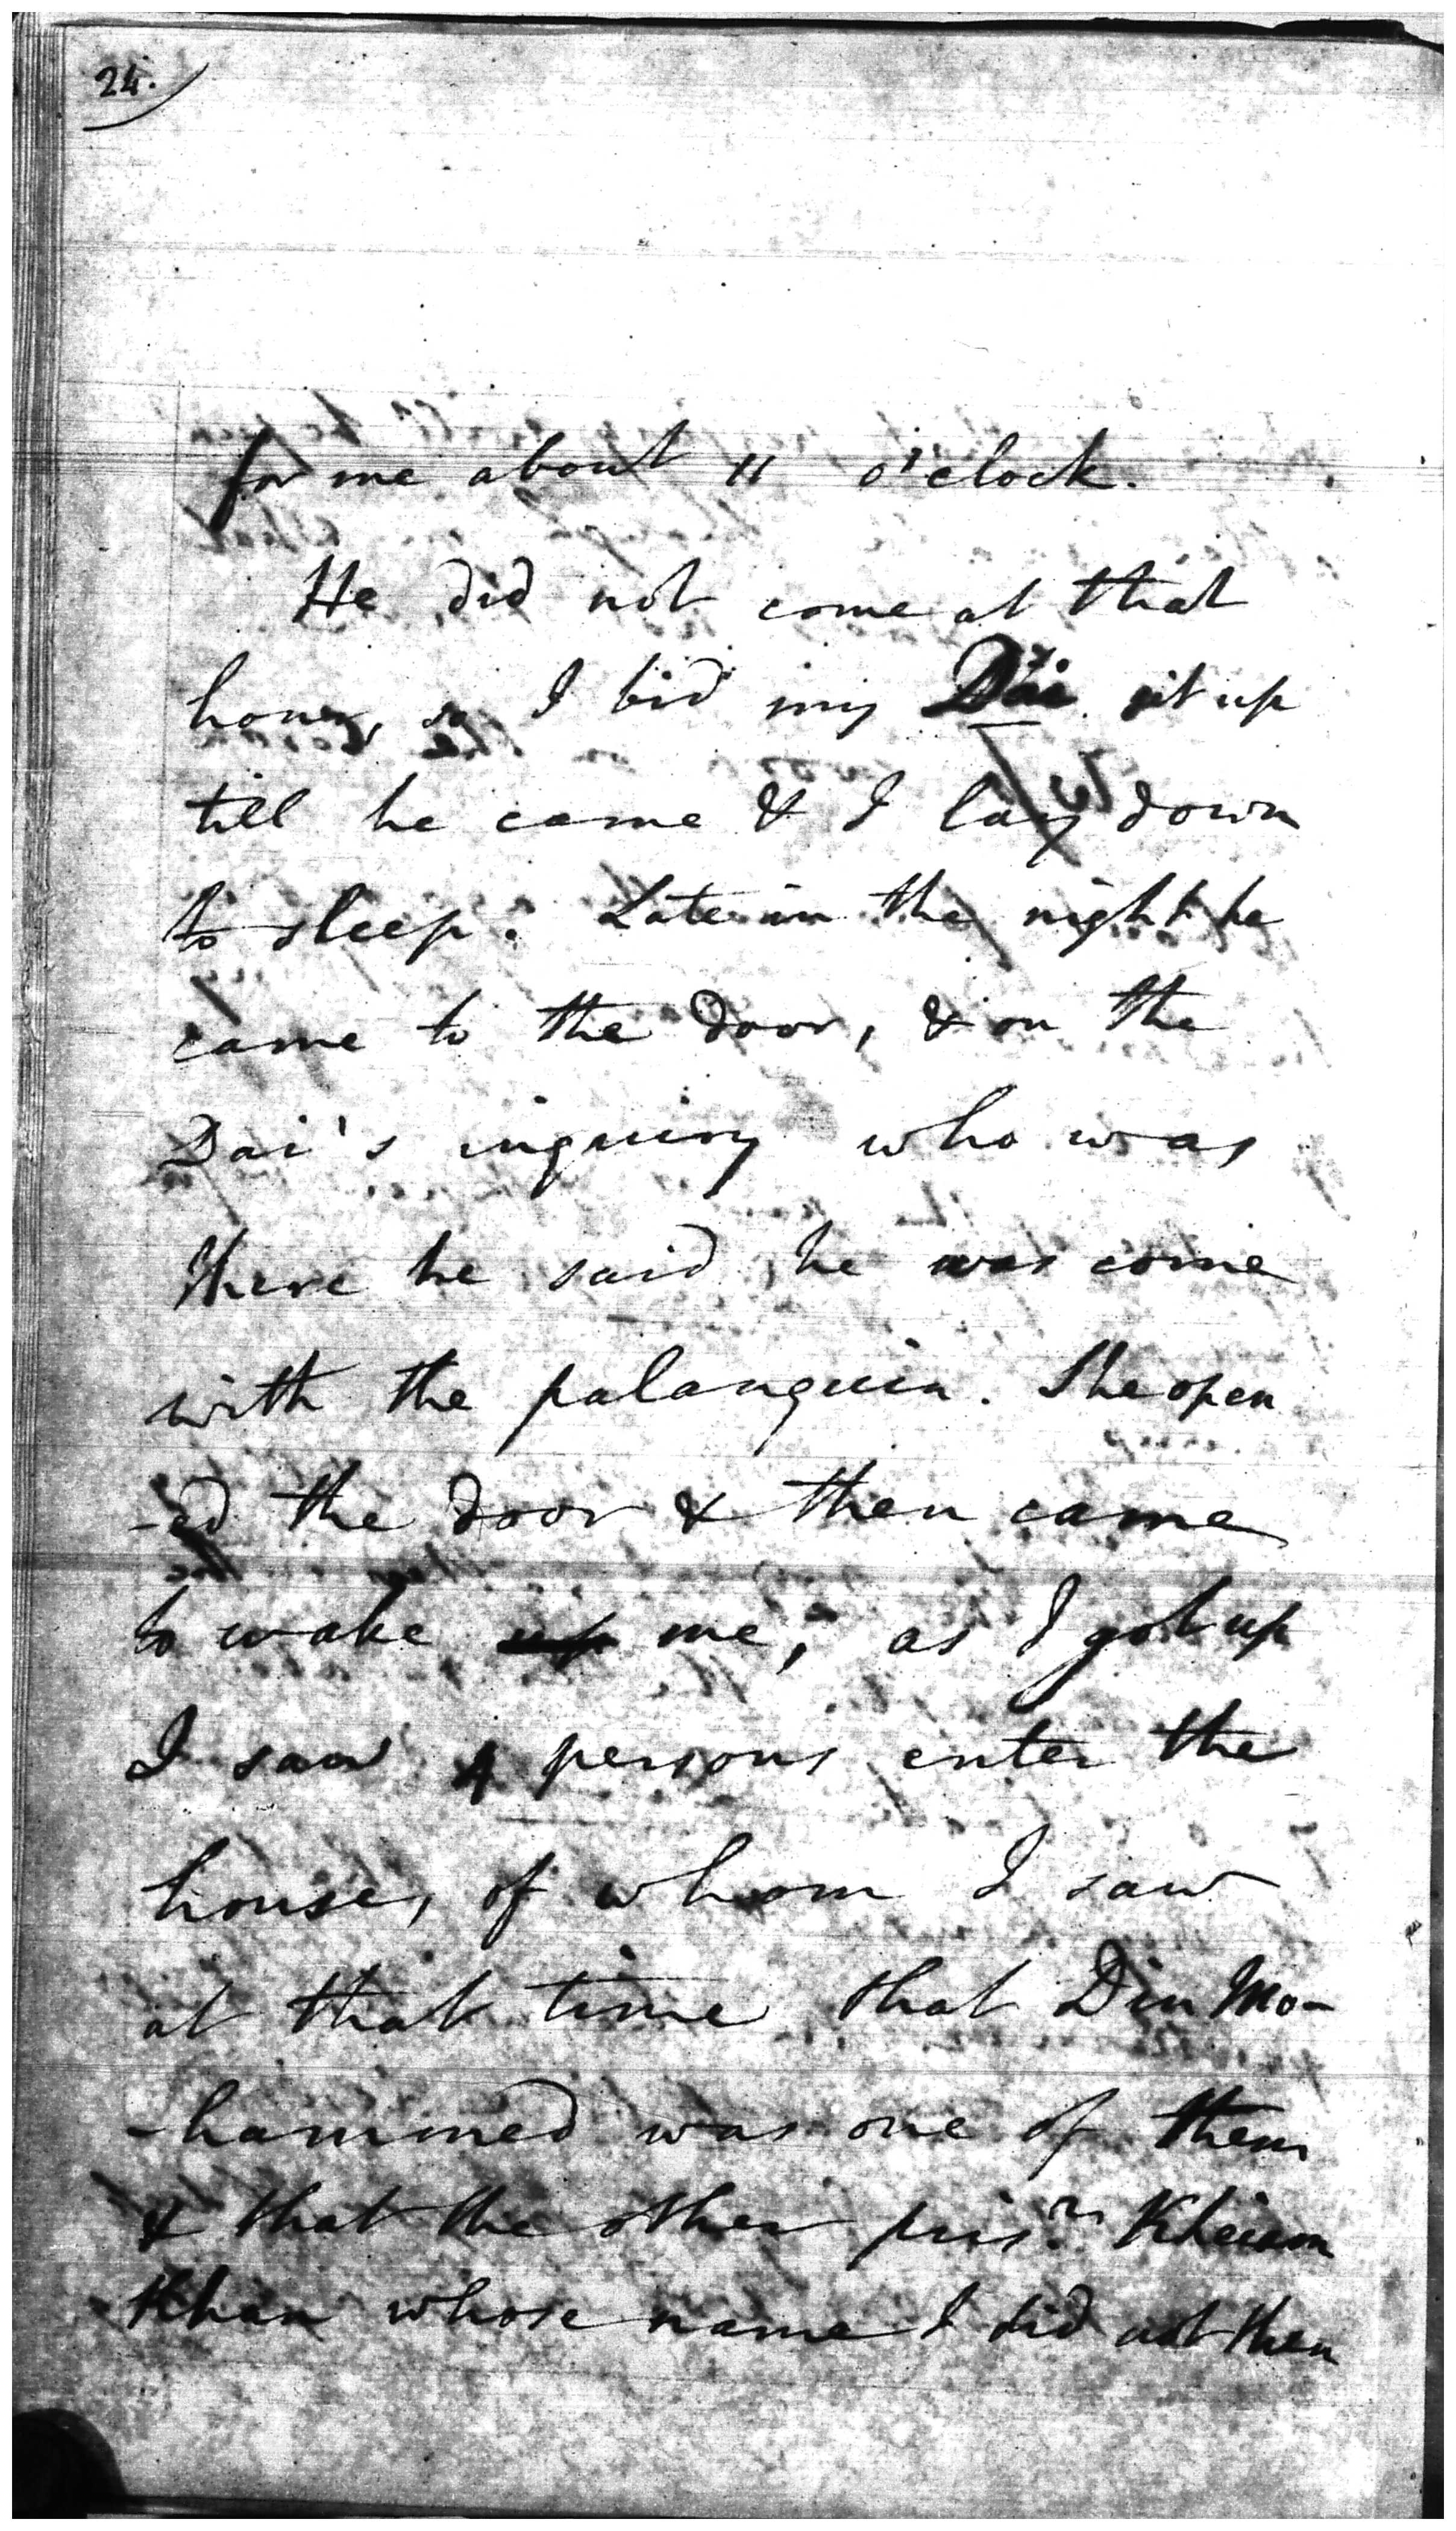 24.
for me about 11 o'clock.
He did not come at that
hour, so I bid my Dai sit up
till he came & I lay down
to sleep. Late in the night he
came to the door, & on the
Dai's inquiry who was
there he said he was come
with the palanquin. She open
-ed the door & then came
to wake up me; as I got up
I saw 4 persons enter the
house, of whom I saw
at that time that Din Mo-
-hammed was one of them
& that the other prisr. Kheiron
Khan whose name I did not then